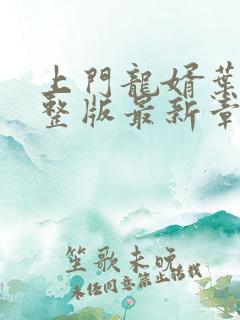 上門龍婿葉
整版最新章
笙歌未晚
未经同意禁止转载